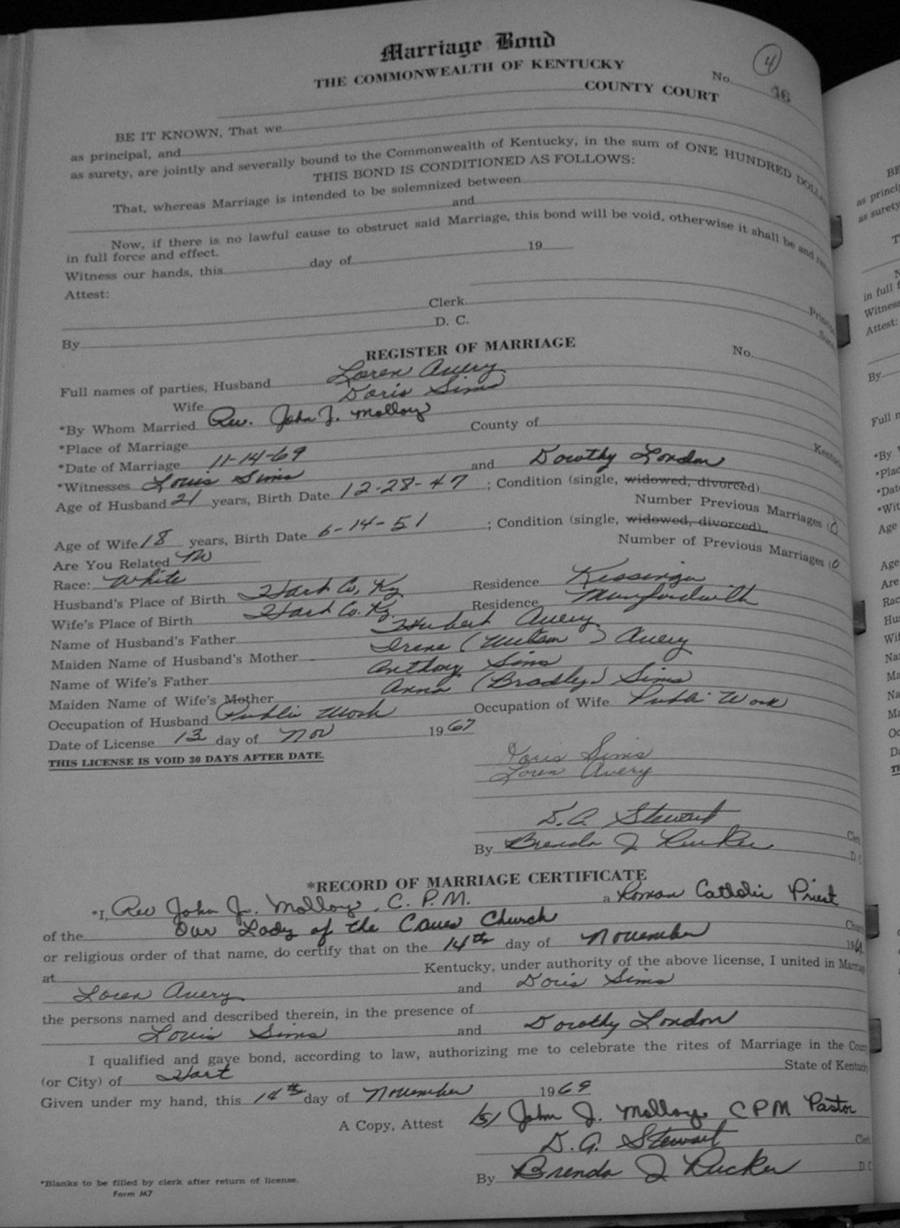 4
Marriage Bond
THE COMMONWEALTH OF KENTUCKY No. 16
COUNTY COURT
BE IT KNOWN, That we
as principal, and
as surety, are jointly and severally bound to the Commonwealth of Kentucky, in the sum of ONE HUNDRED DOLLA
THIS BOND IS CONDITIONED AS FOLLOWS:
That, whereas Marriage is intended to be solemnized between
and
Now, if there is no lawful cause to obstruct said Marriage, this bond will be void, otherwise it shall be and
in full force and effect.
Witness our hands, this day of 19
Attest:
Principal
Clerk
Surety
By D. C.
REGISTER OF MARRIAGE No.
Full names of parties, Husband Loren Avery
Wife Doris Sims
*By Whom Married Rev. John J. Molloy
*Place of Marriage County of Kentucky
*Date of Marriage 11-14-69
*Witnesses Louis Sims and Dorothy London
Age of Husband 21 years, Birth Date 12-28-47 ; Condition (single, widowed, divorced)
Number Previous Marriages (0
Age of Wife 18 years, Birth Date 6-14-51 ; Condition (single, widowed, divorced)
Number of Previous Marriages (0
Are You Related No
Race: White
Husband's Place of Birth Hart Co, Ky Residence Kessinger
Wife's Place of Birth Hart Co. Ky Residence Munfordville
Name of Husband's Father Hubert Avery
Maiden Name of Husband's Mother Irene (Wilson) Avery
Name of Wife's Father Anthony Sims
Maiden Name of Wife's Mother Anna (Bradley) Sims
Occupation of Husband Public Work Occupation of Wife Public Work
Date of License 13 day of Nov 1967
THIS LICENSE IS VOID 30 DAYS AFTER DATE.
Doris Sims
Loren Avery
D. A. Stewart Clerk
By Brenda J Rucker D. C
*RECORD OF MARRIAGE CERTIFICATE
*I, Rev John J. Molloy, C. P. M. a Roman Catholic Priest
of the Our Lady of the Caves Church Church
or religious order of that name, do certify that on the 14th day of November 1969
at Kentucky, under authority of the above license, I united in Marriag
Loren Avery and Doris Sims
the persons named and described therein, in the presence of
Louis Sims and Dorothy London
I qualified and gave bond, according to law, authorizing me to celebrate the rites of Marriage in the Coun
(or City) of Hart State of Kentucky
Given under my hand, this 14th day of November 1969
A Copy, Attest (s) John J. Molloy CPM Pastor
D. A. Stewart Clerk
By Brenda J Rucker D. C
*Blanks to be filled by clerk after return of license.
Form M7